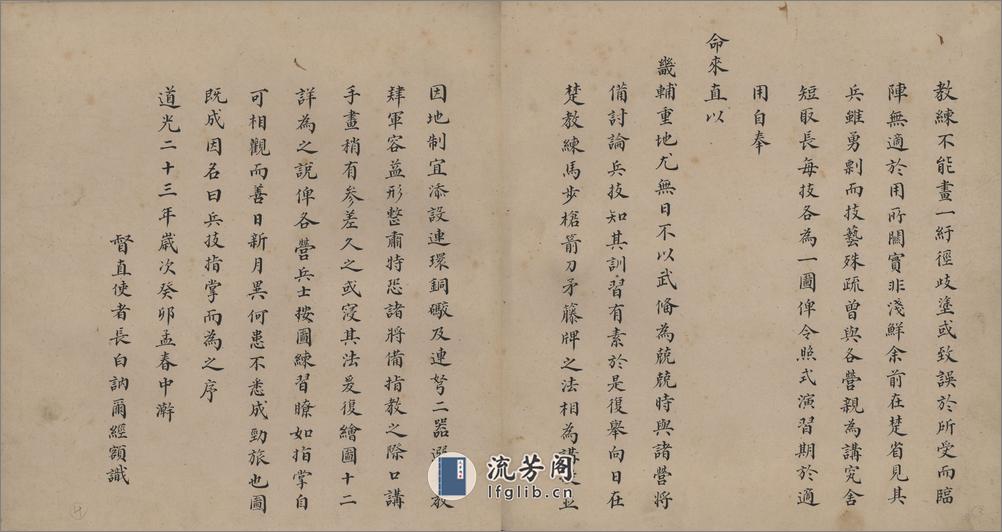 教練不能畫一紆徑歧塗或致誤於所受而臨
陣無適於用所關實非淺鮮余前在楚省見其
兵雖勇剽而技藝殊疏曾與各營親為講究舍
短取長每技各為一圖俾令照式演習期於適
用自奉
命來直以
畿輔重地尤無日不以武備為兢兢時與諸營將
備討論兵技知其訓習有素於是復舉向日在
楚教練馬步槍箭刀矛藤牌之法相為講
因地制宜添設連環銅礮及連弩二器
肄軍容益形整肅特恐諸將備指教之際口講
手畫稍有參差久之或寖其法爰復繪圖十二
詳為之說俾各營兵士按圖練習瞭如指掌自
可相觀而善日新月異何患不悉成勁旅也圖
既成因名曰兵技指掌而為之序
道光二十三年歲次癸卯孟春中澣
督直使者長白訥爾經額識
流芳阁
lfglib.cn